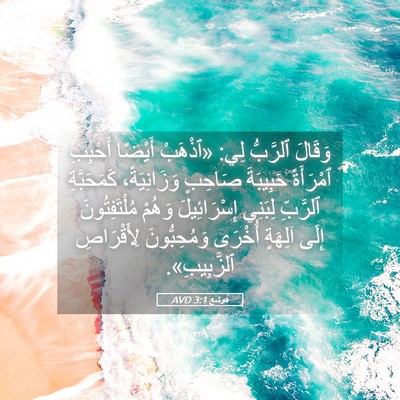 وَقَالَ ٱلرَّبُّ لِي: «ٱذْهَبْ أَيْضًا أَحْبِبِ
ٱمْرَأَةً حَبِيبَةَ صَاحِبٍ وَزَانِيَةً، كَمَحَبَّةِ
ٱلرَّبِّ لِبَنِي إِسْرَائِيلَ وَهُمْ مُلْتَفِتُونَ
إِلَى آلِهَةٍ أُخْرَى وَمُحِبُّونَ لِأَقْرَاصِ
ٱلزَّبِيبِ».
هوشع 3:1 AVD